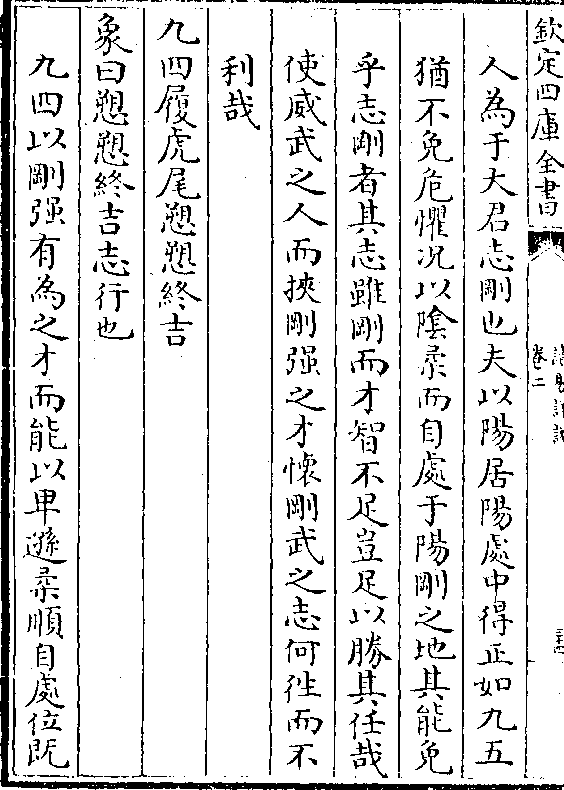 欽定四庫全書
卷二
人為于大君志剛也夫以陽居陽處中得正如九五
猶不免危懼況以陰柔而自處于陽剛之地其能免
乎志剛者其志雖剛而才智不足豈足以勝其任哉
使威武之人而挾剛强之才懷剛武之志何徃而不
利哉
九四履虎尾愬愬終吉
象曰愬愬終吉志行也
九四以剛强有為之才而能以卑遜柔順自處位既